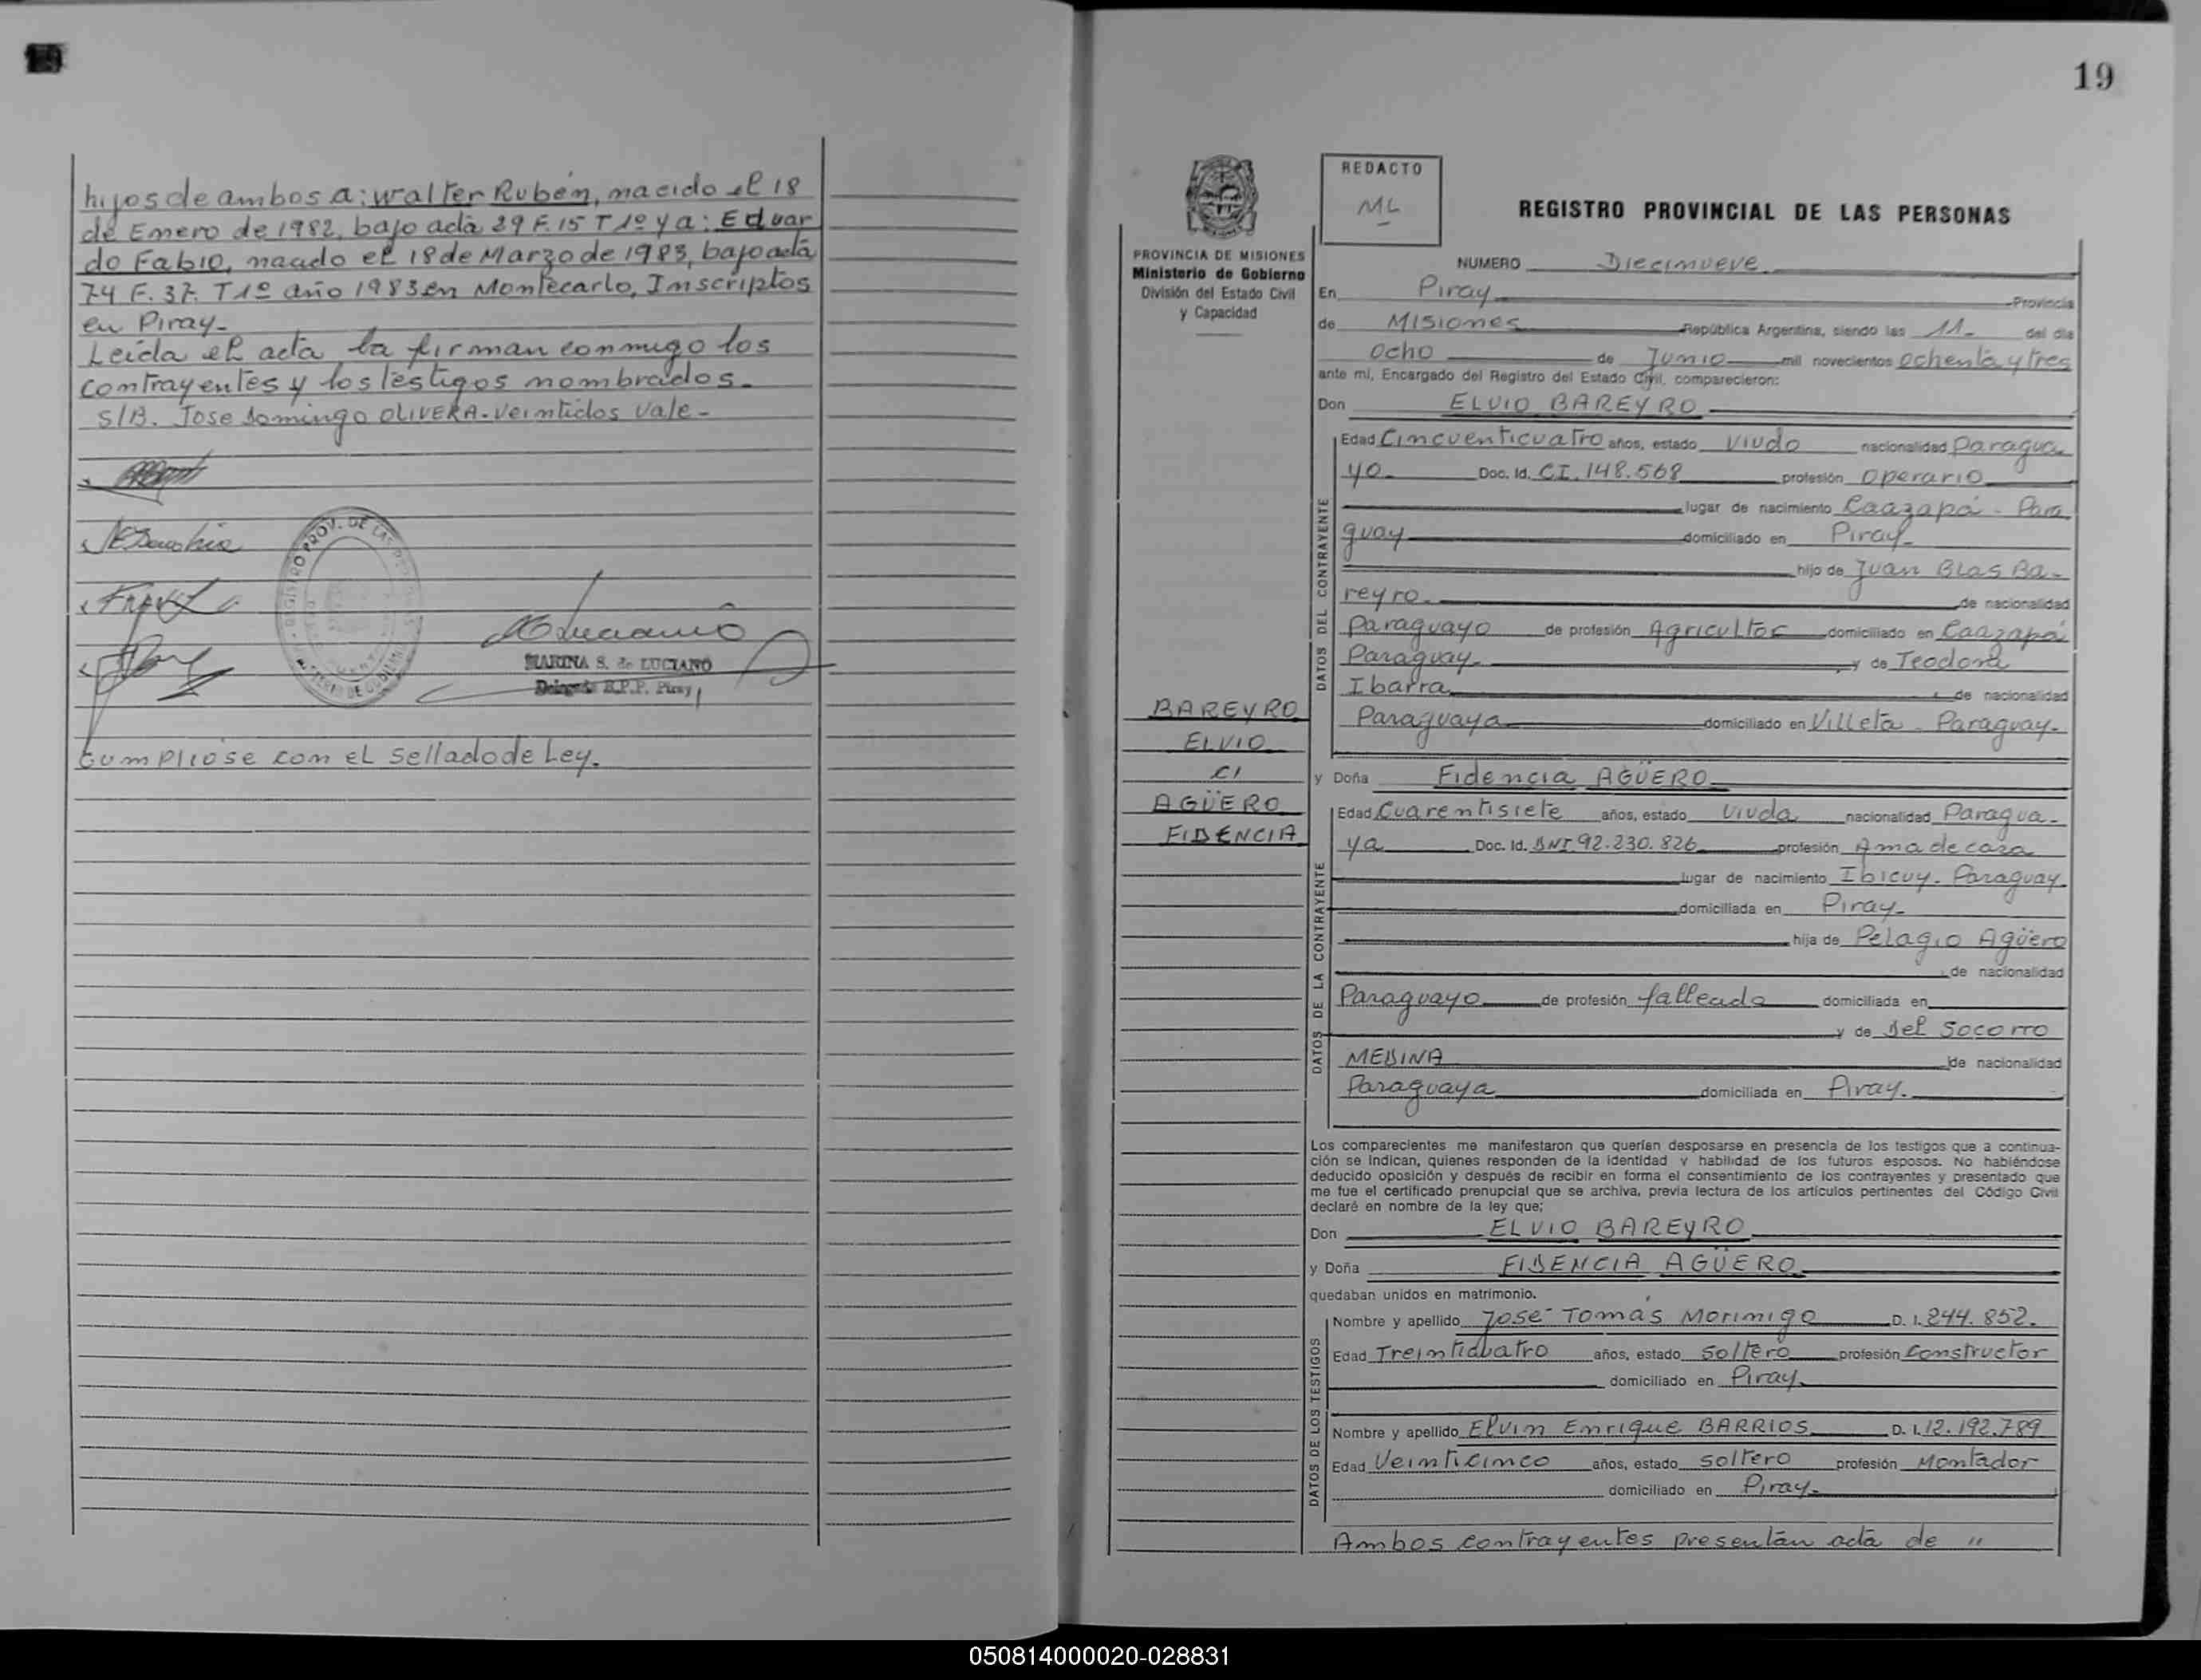 hijos de ambos a: Walter Rubén, nacido el 18
de Enero de 1982, bajo acta 29 F. 15 T 1º y a: Eduar
do Fabio, nacido el 18 de Marzo de 1983, bajo acta
74 F. 37. T 1º año 1983 en Montecarlo, Inscriptos
en Piray-
Leída el acta la firman conmigo los
contrayentes y los testigos nombrados.
S/B. Jose Domingo OLIVERA - Veintidos Vale -
REGISTRO PROV. DE LAS
MARINA S. de LUCIANO
Delegada R.P.P. Piray
Cumpliose con el sellado de Ley.
19
REDACTO
ML
REGISTRO PROVINCIAL DE LAS PERSONAS
PROVINCIA DE MISIONES
Ministerio de Gobierno
División del Estado Civil
y Capacidad
BAREYRO
ELVIO
C/
AGÜERO
FIDENCIA
NUMERO Diecinueve
En Piray Provincia
de Misiones República Argentina, siendo las 11- del día
Ocho de Junio mil novecientos ochenta y tres
ante mí, Encargado del Registro del Estado Civil, comparecieron:
Don ELVIO BAREYRO
DATOS DEL CONTRAYENTE
Edad Cincuenticuatro años, estado Viudo nacionalidad Paragua
yo- Doc. Id. CI. 148.568 profesión Operario
lugar de nacimiento Caazapá - Para
guay domiciliado en Piray-
hijo de Juan Blas Ba-
reyro. de nacionalidad
Paraguayo de profesión Agricultor domiciliado en Caazapá
Paraguay y de Teodora
Ibarra de nacionalidad
Paraguaya domiciliado en Villeta - Paraguay-
y Doña Fidencia AGÜERO
DATOS DE LA CONTRAYENTE
Edad Cuarentisiete años, estado Viuda nacionalidad Paragua-
ya Doc. Id. DNI 92.230.826 profesión Ama de casa
lugar de nacimiento Ibicuy. Paraguay
domiciliada en Piray-
hija de Pelagio Agüero
de nacionalidad
Paraguayo de profesión fallecido domiciliada en
y de Del Socorro
MEDINA de nacionalidad
Paraguaya domiciliada en Piray.
Los comparecientes me manifestaron que querían desposarse en presencia de los testigos que a continua-
ción se indican, quienes responden de la identidad y habilidad de los futuros esposos. No habiéndose
deducido oposición y después de recibir en forma el consentimiento de los contrayentes y presentado que
me fue el certificado prenupcial que se archiva, previa lectura de los artículos pertinentes del Código Civil
declaré en nombre de la ley que;
Don ELVIO BAREYRO
y Doña FIDENCIA AGÜERO
quedaban unidos en matrimonio.
DATOS DE LOS TESTIGOS
Nombre y apellido José Tomás Morinigo D. I. 244.852.
Edad Treinticuatro años, estado soltero profesión Constructor
domiciliado en Piray
Nombre y apellido Elvin Enrique BARRIOS D. I. 12.192.789
Edad Veinticinco años, estado soltero profesión Montador
domiciliado en Piray-
Ambos contrayentes presentan acta de "
050814000020-028831